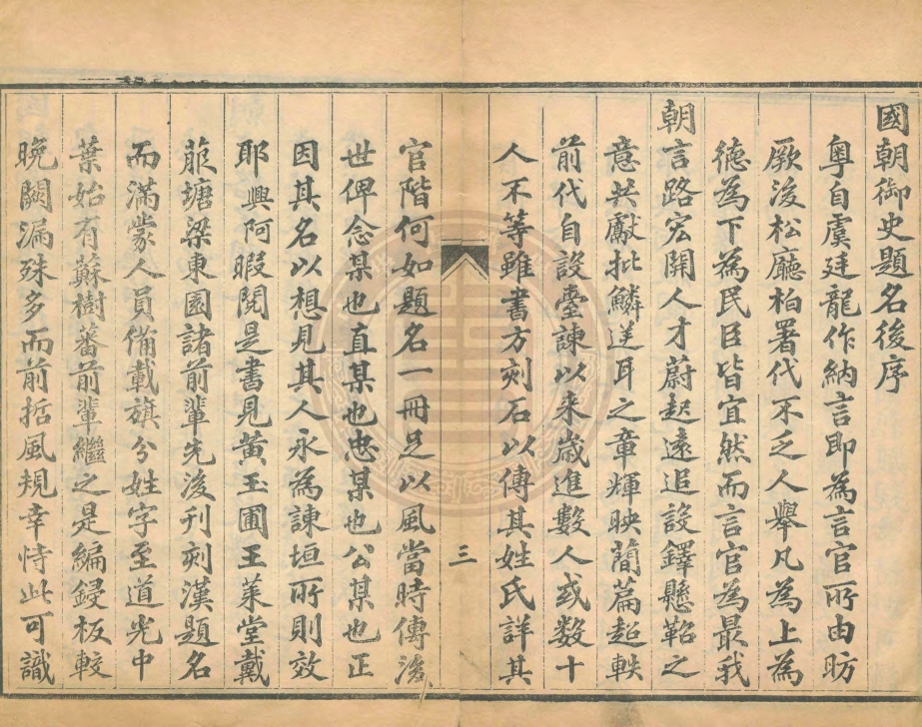 國朝御史題名後序
粵自虞廷龍作納言即為言官所由昉
厥後松廳柏署代不乏人舉凡為上為
德為下為民臣皆宜然而言官為最我
朝言路宏開人才蔚起遠追設鐸懸鞀之
意共獻批鱗逆耳之章輝映簡篇超軼
前代自設臺諫以来歲進數人或數十
人不等雖書方刻石以傳其姓氏詳其
三
官階何如題名一冊足以風當時傳後
世俾念某也直某也忠某也公某也正
因其名以想見其人永為諫垣所則效
耶興阿暇閱是書見黃玉圃王萊堂戴
菔塘梁東園諸前輩先後刊刻漢題名
而滿蒙人員備載旗分姓字至道光中
葉始有蘇樹蕃前輩繼之是編鋟板較
晚闕漏殊多而前哲風規幸恃此可識